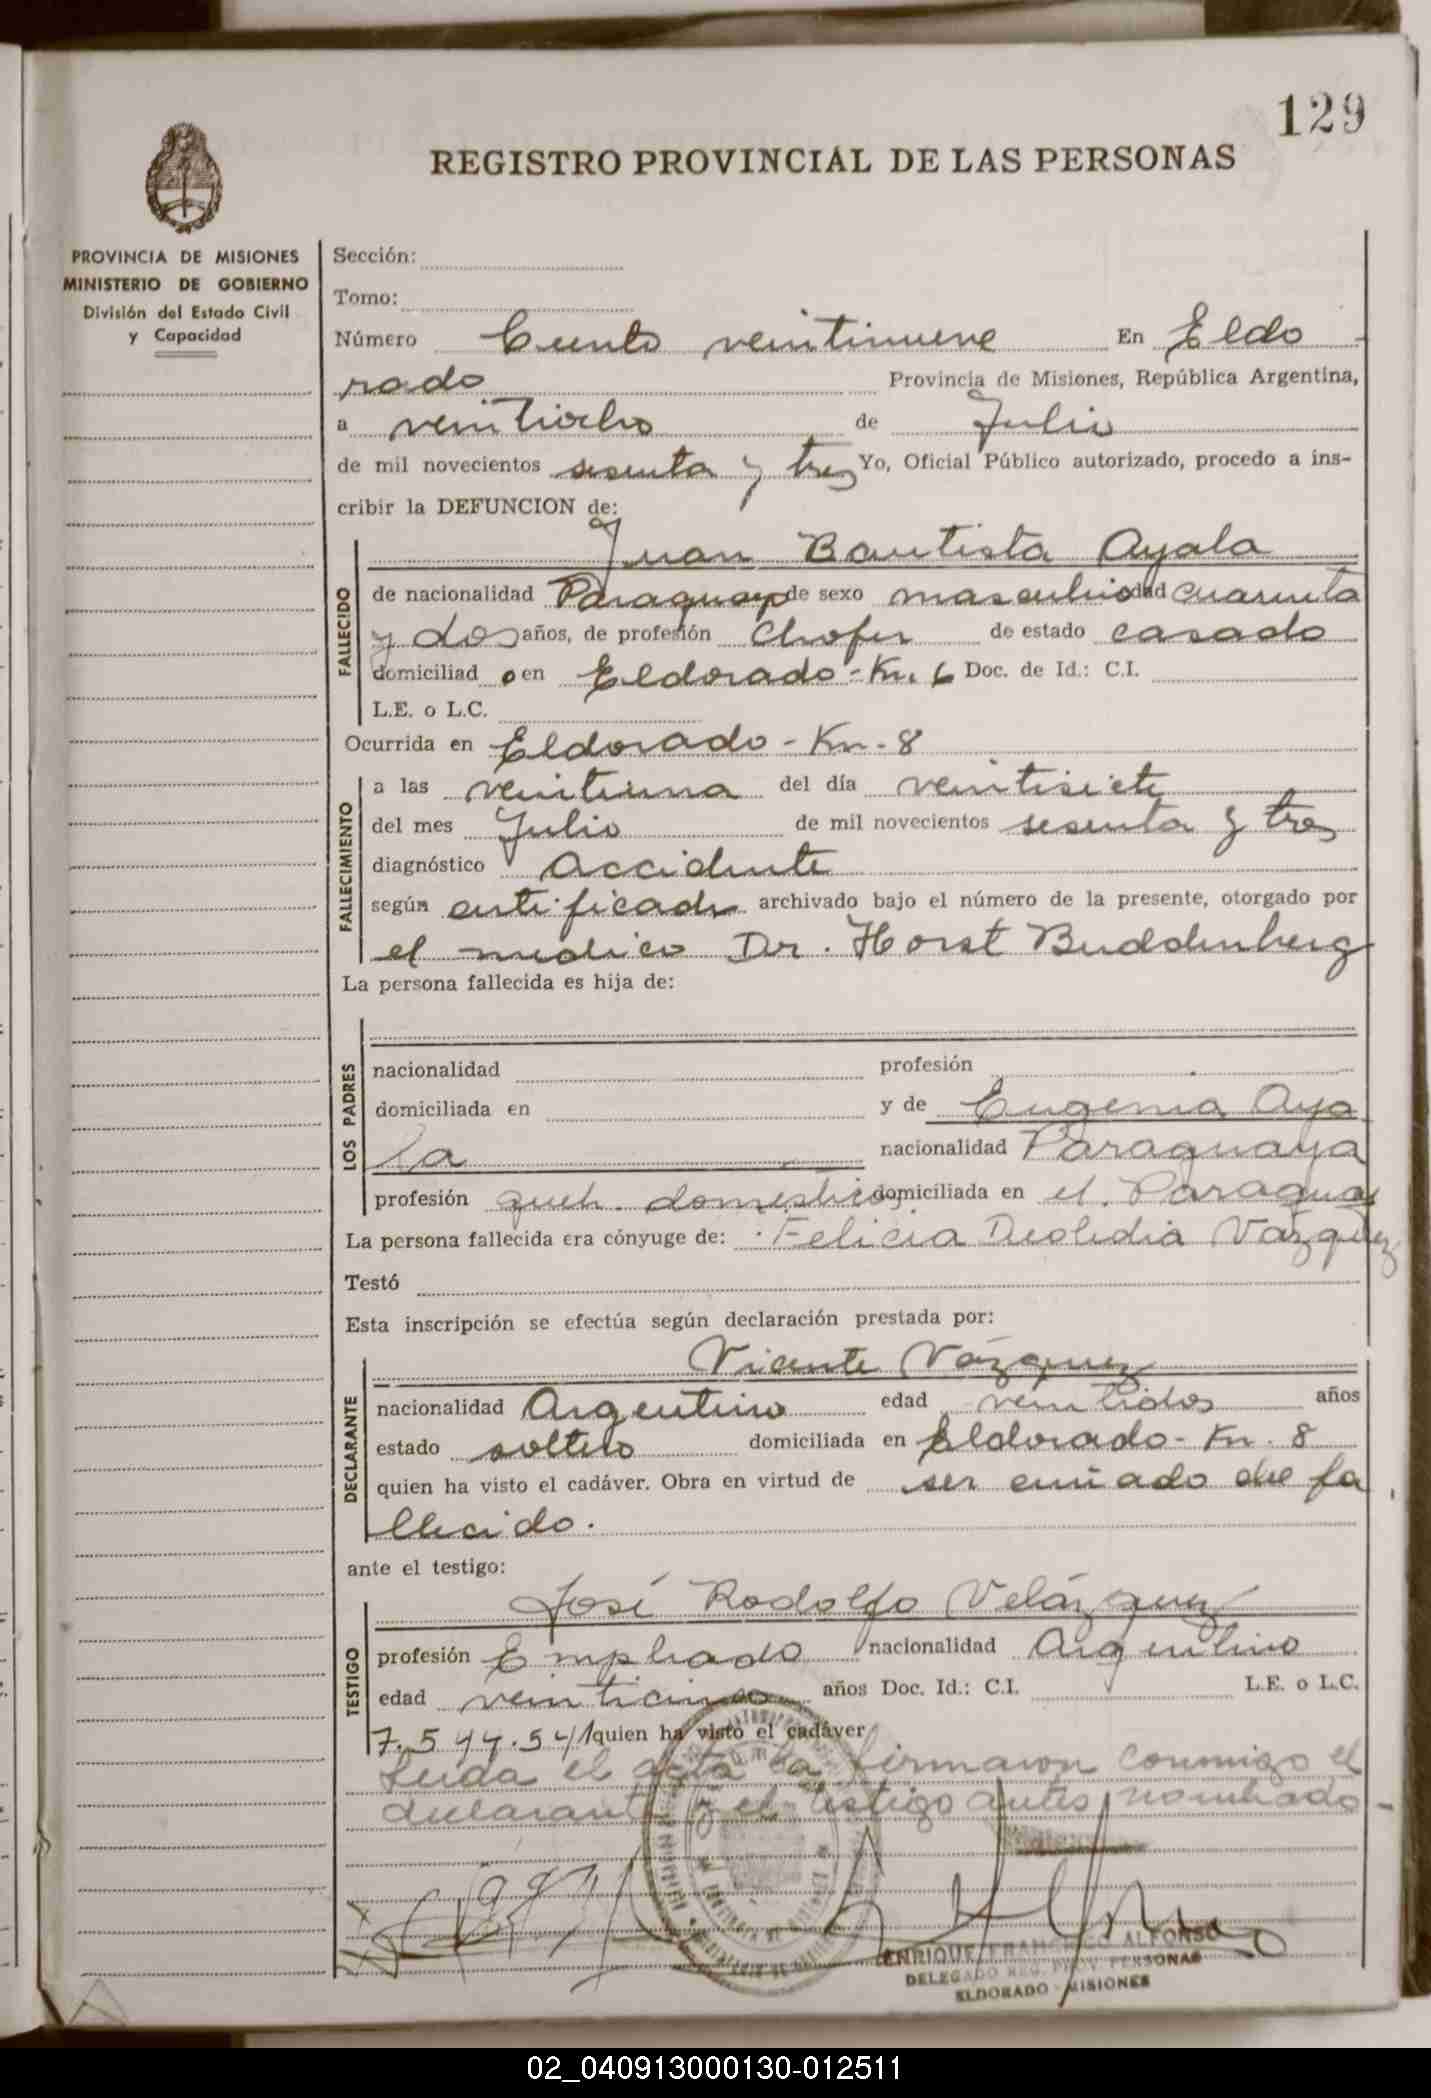 129
REGISTRO PROVINCIAL DE LAS PERSONAS
PROVINCIA DE MISIONES
MINISTERIO DE GOBIERNO
División del Estado Civil
y Capacidad
Sección:
Tomo:
Número Ciento veintinueve En Eldo
rado Provincia de Misiones, República Argentina,
a veintiocho de Julio
de mil novecientos sesenta y tres Yo, Oficial Público autorizado, procedo a ins-
cribir la DEFUNCION de:
Juan Bautista Ayala
FALLECIDO
de nacionalidad Paraguayo de sexo masculino edad cuarenta
y dos años, de profesión Chofer de estado casado
domiciliad o en Eldorado - Km. 6 Doc. de Id.: C.I.
L.E. o L.C.
Ocurrida en Eldorado - Km - 8
FALLECIMIENTO
a las veintiuna del día veintisiete
del mes Julio de mil novecientos sesenta y tres
diagnóstico accidente
según certificado archivado bajo el número de la presente, otorgado por
el medico Dr. Horst Buddenberg
La persona fallecida es hija de:
LOS PADRES
nacionalidad profesión
domiciliada en y de Eugenia Aya
la nacionalidad Paraguaya
profesión queh. domesticos domiciliada en el Paraguay
La persona fallecida era cónyuge de: Felicia Deolidia Vázquez
Testó
Esta inscripción se efectúa según declaración prestada por:
Vicente Vázquez
DECLARANTE
nacionalidad Argentino edad veintidos años
estado soltero domiciliada en Eldorado - Km. 8
quien ha visto el cadáver. Obra en virtud de ser cuñado del fa
llecido.
ante el testigo:
José Rodolfo Velázquez
TESTIGO
profesión Empleado nacionalidad Argentino
edad veinticinco años Doc. Id.: C.I. L.E. o L.C.
7.544.541 quien ha visto el cadáver
Leida el acta la firmaron conmigo el
declarante y el testigo antes nombrado -
ENRIQUE FRANCISCO ALFONSO
DELEGADO REG. PROV. PERSONAS
ELDORADO - MISIONES
02_040913000130-012511